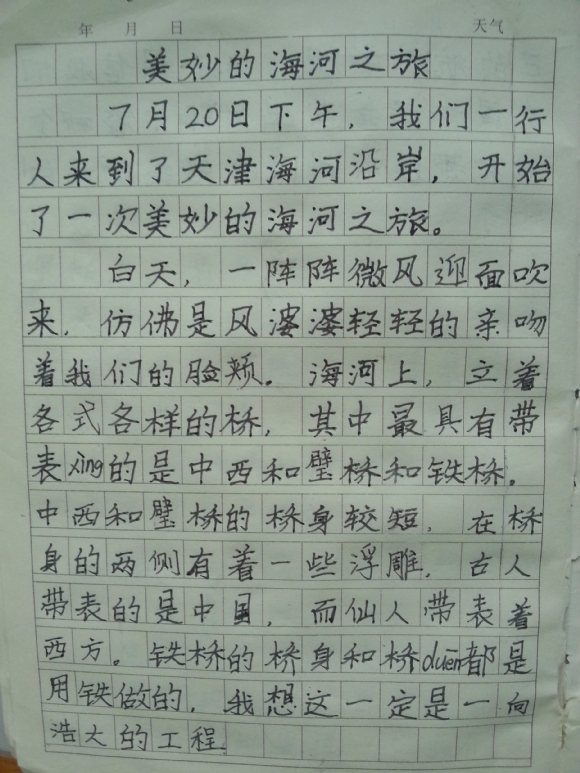 年 月 日 天气
美妙的海河之旅
7月20日下午，我们一行
人来到了天津海河沿岸，开始
了一次美妙的海河之旅。
白天，一阵阵微风迎面吹
来，仿佛是风婆婆轻轻的亲吻
着我们的脸颊。海河上，立着
各式各样的桥，其中最具有带
表xìng的是中西和璧桥和铁桥。
中西和璧桥的桥身较短，在桥
身的两侧有着一些浮雕，古人
带表的是中国，而仙人带表着
西方。铁桥的桥身和桥duēn都是
用铁做的，我想这一定是一向
浩大的工程。